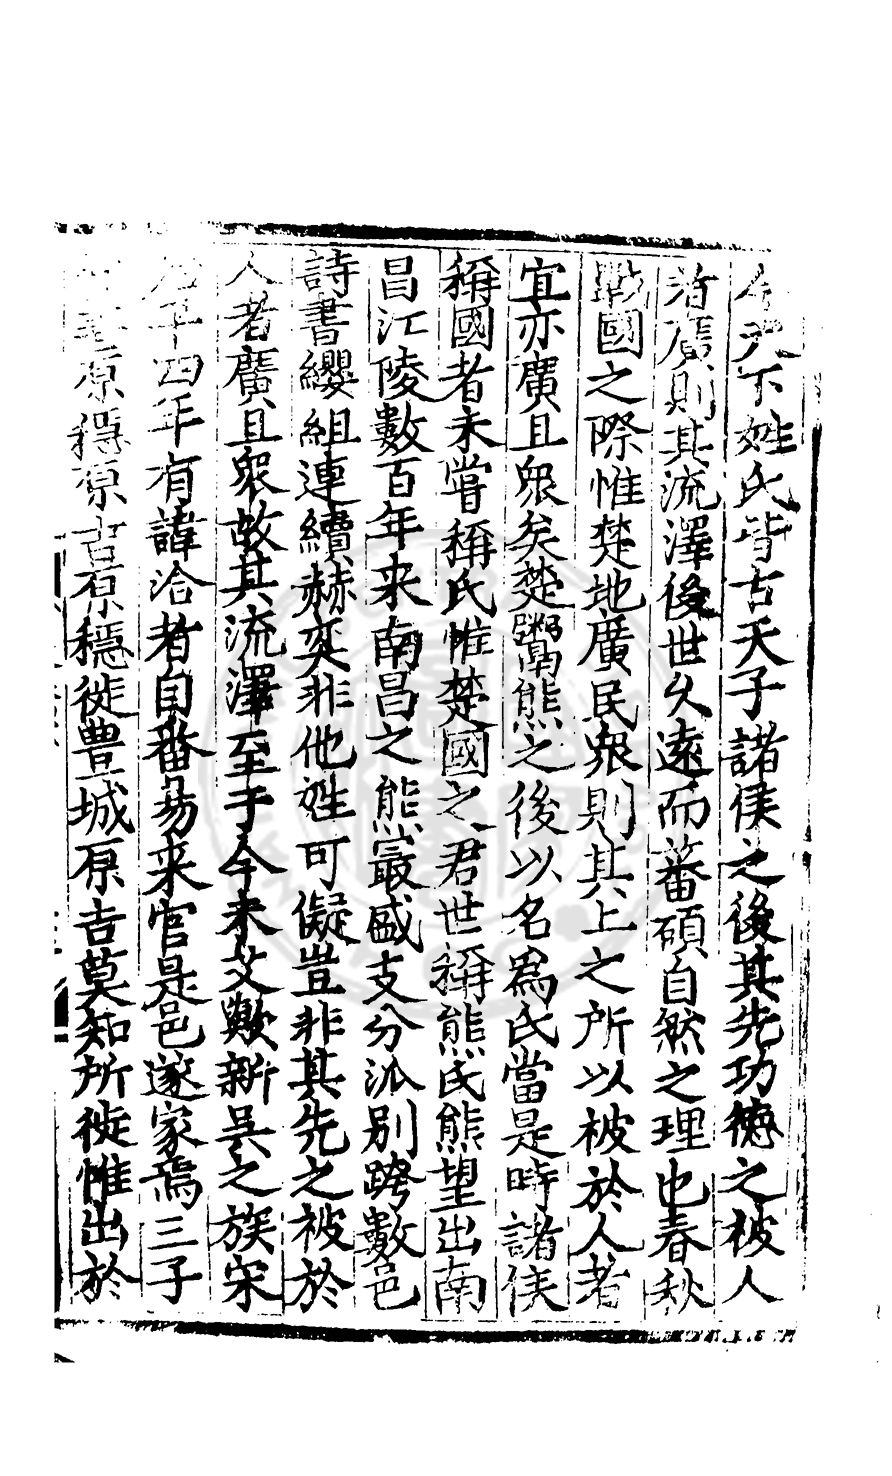 今天下姓氏皆古天子諸侯之後其先功德之被人
者廣則其流澤後世久遠而蕃碩自然之理也春秋
戰國之際惟楚地廣民衆則其上之所以被於人者
宜亦廣且衆矣楚鬻熊之後以名為氏當是時諸侯
稱國者未嘗稱氏惟楚國之君世稱熊氏熊望出南
昌江陵數百年来南昌之熊㝡盛支分派别跨數邑
詩書纓組連續赫奕非他姓可儗豈非其先之被於
人者廣且衆故其流澤至于今未艾歟新吳之族宋
平四年有諱洽者自番昜来官是邑遂家焉三子
原穩原吉原穩徙豊城原吉莫知所徙惟出於